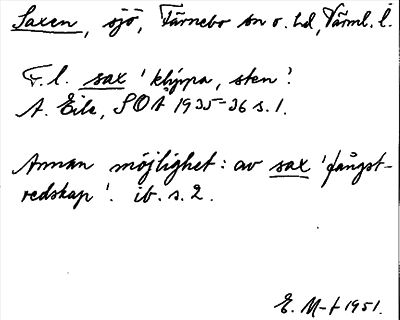 Saxen, sjö, Färnebo sn o. hd, Värml. l.
F. l. sax 'klippa, sten'.
A. Eile, SOÅ 1935-36 s. 1.
Annan möjlighet: av sax 'fångst-
redskap'. ib. s. 2.
E. M-t 1951.